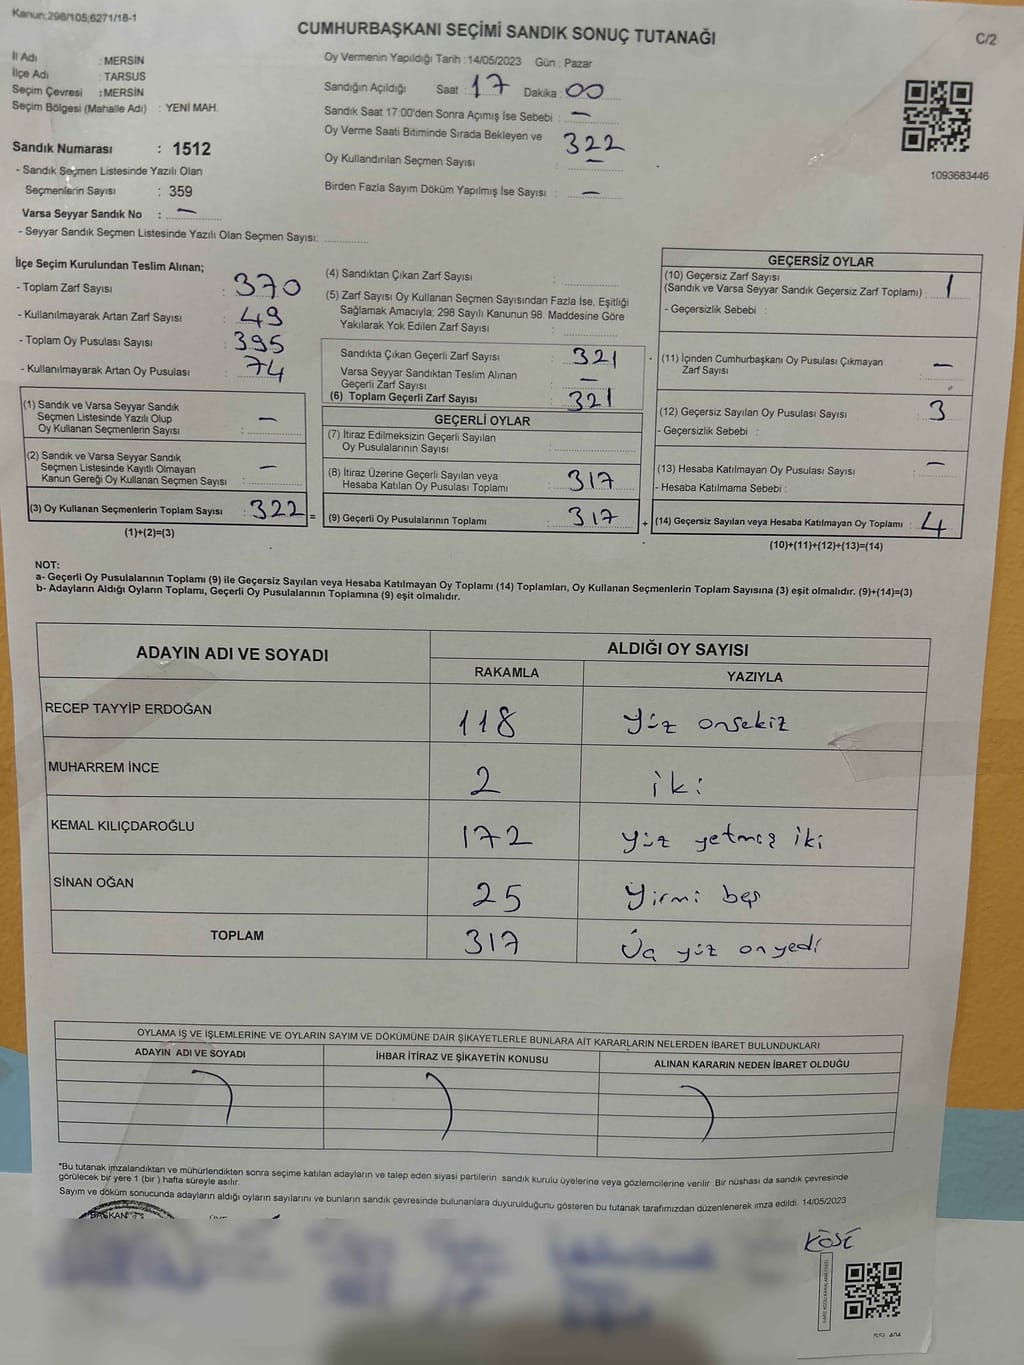 Kanun;298/105;6271/18-1
CUMHURBAŞKANI SEÇİMİ SANDIK SONUÇ TUTANAĞI
C/2
İl Adı : MERSİN
İlçe Adı : TARSUS
Seçim Çevresi : MERSİN
Seçim Bölgesi (Mahalle Adı) : YENİ MAH.
Sandık Numarası : 1512
- Sandık Seçmen Listesinde Yazılı Olan
Seçmenlerin Sayısı : 359
Varsa Seyyar Sandık No : —
- Seyyar Sandık Seçmen Listesinde Yazılı Olan Seçmen Sayısı:
Oy Vermenin Yapıldığı Tarih : 14/05/2023 Gün : Pazar
Sandığın Açıldığı Saat : 17 Dakika : 00
Sandık Saat 17:00'den Sonra Açımış İse Sebebi : —
Oy Verme Saati Bitiminde Sırada Bekleyen ve 322
Oy Kullandırılan Seçmen Sayısı : —
Birden Fazla Sayım Döküm Yapılmış İse Sayısı : —
1093683446
İlçe Seçim Kurulundan Teslim Alınan;
- Toplam Zarf Sayısı : 370
- Kullanılmayarak Artan Zarf Sayısı : 49
- Toplam Oy Pusulası Sayısı : 395
- Kullanılmayarak Artan Oy Pusulası : 74
(1) Sandık ve Varsa Seyyar Sandık
Seçmen Listesinde Yazılı Olup
Oy Kullanan Seçmenlerin Sayısı : —
(2) Sandık ve Varsa Seyyar Sandık
Seçmen Listesinde Kayıtlı Olmayan
Kanun Gereği Oy Kullanan Seçmen Sayısı : —
(3) Oy Kullanan Seçmenlerin Toplam Sayısı : 322 =
(1)+(2)=(3)
(4) Sandıktan Çıkan Zarf Sayısı :
(5) Zarf Sayısı Oy Kullanan Seçmen Sayısından Fazla İse, Eşitliği
Sağlamak Amacıyla; 298 Sayılı Kanunun 98. Maddesine Göre
Yakılarak Yok Edilen Zarf Sayısı :
Sandıkta Çıkan Geçerli Zarf Sayısı : 321
Varsa Seyyar Sandıktan Teslim Alınan
Geçerli Zarf Sayısı : —
(6) Toplam Geçerli Zarf Sayısı : 321
GEÇERLİ OYLAR
(7) İtiraz Edilmeksizin Geçerli Sayılan
Oy Pusulalarının Sayısı :
(8) İtiraz Üzerine Geçerli Sayılan veya
Hesaba Katılan Oy Pusulası Toplamı : 317
(9) Geçerli Oy Pusulalarının Toplamı : 317 +
GEÇERSİZ OYLAR
(10) Geçersiz Zarf Sayısı
(Sandık ve Varsa Seyyar Sandık Geçersiz Zarf Toplamı) : 1
- Geçersizlik Sebebi :
(11) İçinden Cumhurbaşkanı Oy Pusulası Çıkmayan
Zarf Sayısı : —
(12) Geçersiz Sayılan Oy Pusulası Sayısı : 3
- Geçersizlik Sebebi :
(13) Hesaba Katılmayan Oy Pusulası Sayısı : —
- Hesaba Katılmama Sebebi :
(14) Geçersiz Sayılan veya Hesaba Katılmayan Oy Toplamı : 4
(10)+(11)+(12)+(13)=(14)
NOT:
a- Geçerli Oy Pusulalarının Toplamı (9) ile Geçersiz Sayılan veya Hesaba Katılmayan Oy Toplamı (14) Toplamları, Oy Kullanan Seçmenlerin Toplam Sayısına (3) eşit olmalıdır. (9)+(14)=(3)
b- Adayların Aldığı Oyların Toplamı, Geçerli Oy Pusulalarının Toplamına (9) eşit olmalıdır.
ADAYIN ADI VE SOYADI
ALDIĞI OY SAYISI
RAKAMLA YAZIYLA
RECEP TAYYİP ERDOĞAN 118 Yüz onsekiz
MUHARREM İNCE 2 iki
KEMAL KILIÇDAROĞLU 172 yüz yetmiş iki
SİNAN OĞAN 25 Yirmi beş
TOPLAM 317 Üç yüz onyedi
OYLAMA İŞ VE İŞLEMLERİNE VE OYLARIN SAYIM VE DÖKÜMÜNE DAİR ŞİKAYETLERLE BUNLARA AİT KARARLARIN NELERDEN İBARET BULUNDUKLARI
ADAYIN ADI VE SOYADI İHBAR İTİRAZ VE ŞİKAYETİN KONUSU ALINAN KARARIN NEDEN İBARET OLDUĞU
*Bu tutanak imzalandıktan ve mühürlendikten sonra seçime katılan adayların ve talep eden siyasi partilerin sandık kurulu üyelerine veya gözlemcilerine verilir. Bir nüshası da sandık çevresinde
görülecek bir yere 1 (bir ) hafta süreyle asılır.
Sayım ve döküm sonucunda adayların aldığı oyların sayılarını ve bunların sandık çevresinde bulunanlara duyurulduğunu gösteren bu tutanak tarafımızdan düzenlenerek imza edildi. 14/05/2023
BAŞKAN
KÖSE